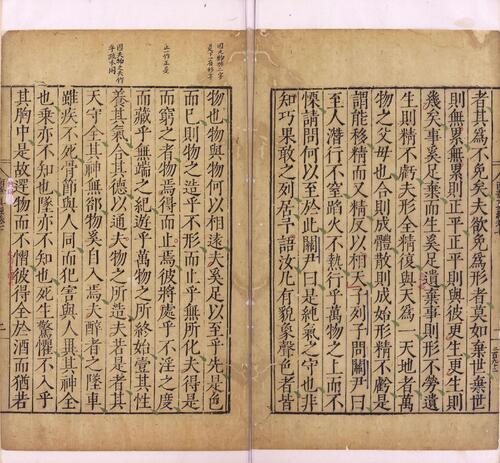 者其為不免矣夫欲免為形者莫如棄世棄世
則無累無累則正平正平則與彼更生更生則
幾矣事奚足棄而生奚足遺棄事則形不勞遺
生則精不虧夫形全精復與天為一天地者萬
物之父母也合則成體散則成始形精不虧是
謂能移精而又精反以相天子列子問關尹曰
至人潛行不窒蹈火不熱行乎萬物之上而不
慄請問何以至於此關尹曰是純氣之守也非
知巧果敢之列居予語汝凡有貌象聲色者皆
物也物與物何以相遠夫奚足以至乎先是色
而已則物之造乎不形而止乎無所化夫得是
而窮之者物焉得而止焉彼將處乎不淫之度
而藏乎無端之紀遊乎萬物之所終始壹其性
養其氣合其德以通夫物之所造夫若是者其
天守全其神無郤物奚自入焉夫醉者之墜車
雖疾不死骨節與人同而犯害與人異其神全
也乘亦不知也墜亦不知也死生驚懼不入乎
其胸中是故遻物而不慴彼得全於酒而猶若
二